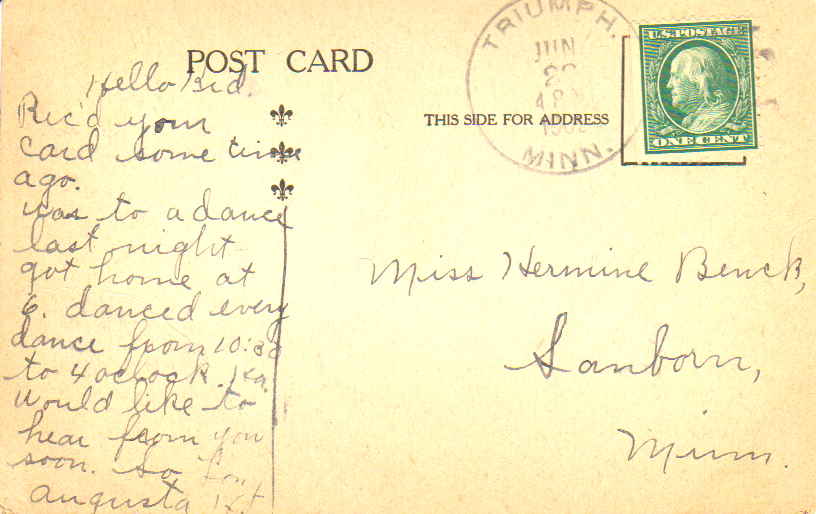 POST CARD
THIS SIDE FOR ADDRESS
TRIUMPH.
JUN
MINN.
U.S. POSTAGE
ONE CENT
Hello Bid.
Rec'd your
card some time
ago.
was to a dance
last night
got home at
6. danced every
dance from 10:30
to 4 oclock.
Would like to
hear from you
soon. So
Augusta
Miss Hermine Benck,
Sanborn,
Minn.